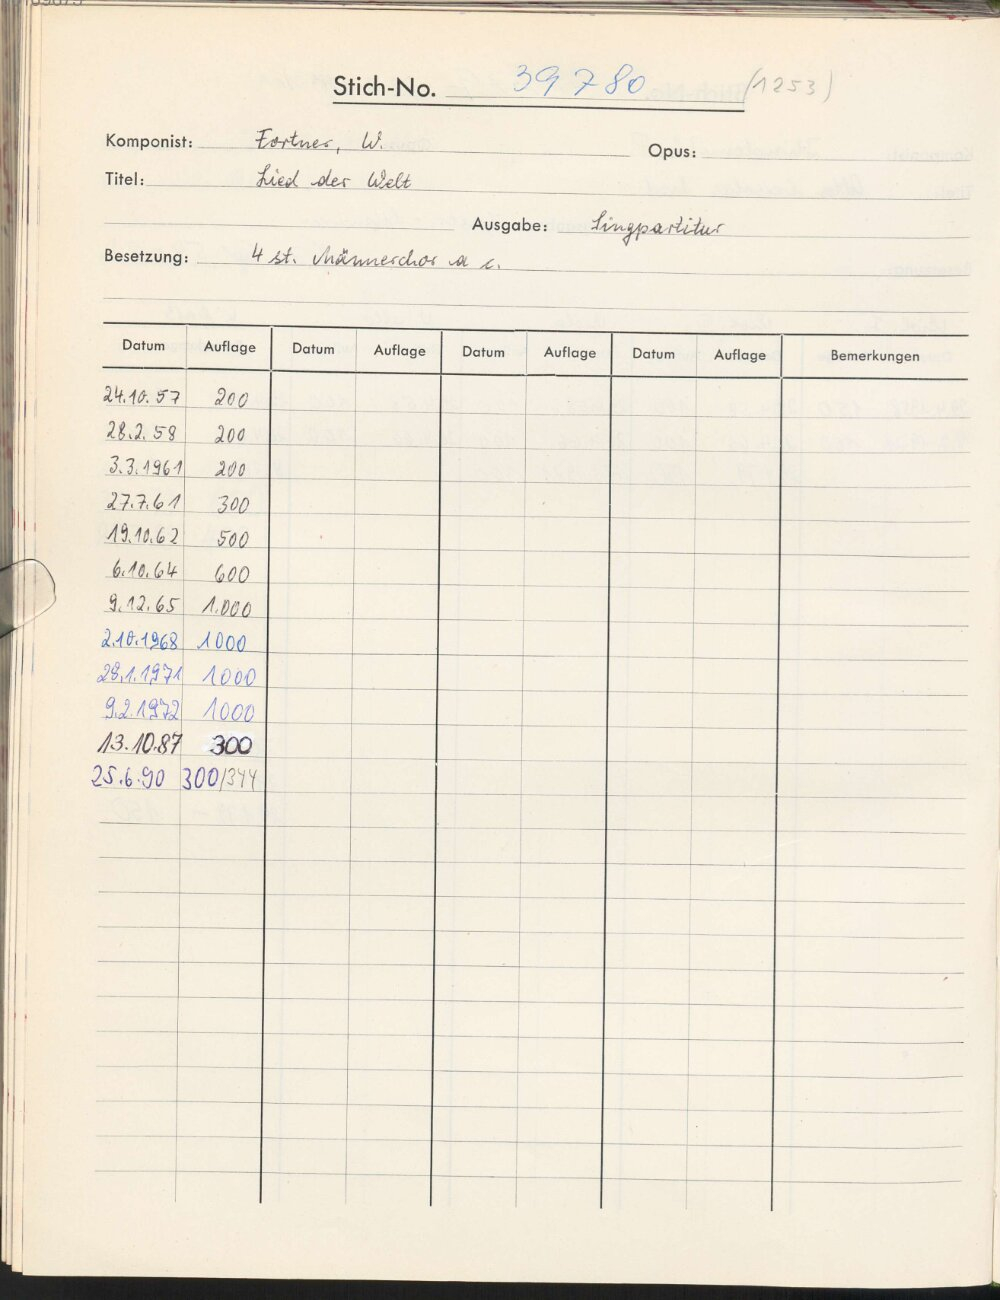 Stich-No. 39780 (1253)
Komponist: Fortner, W. Opus:
Titel: Lied der Welt
Ausgabe: Singpartitur
Besetzung: 4 st. Männerchor a c.
Datum Auflage Datum Auflage Datum Auflage Datum Auflage Bemerkungen
24.10.57 200
28.2.58 200
3.3.1961 200
27.7.61 300
19.10.62 500
6.10.64 600
9.12.65 1.000
2.10.1968 1000
28.1.1971 1000
9.2.1972 1000
13.10.87 300
25.6.90 300/344